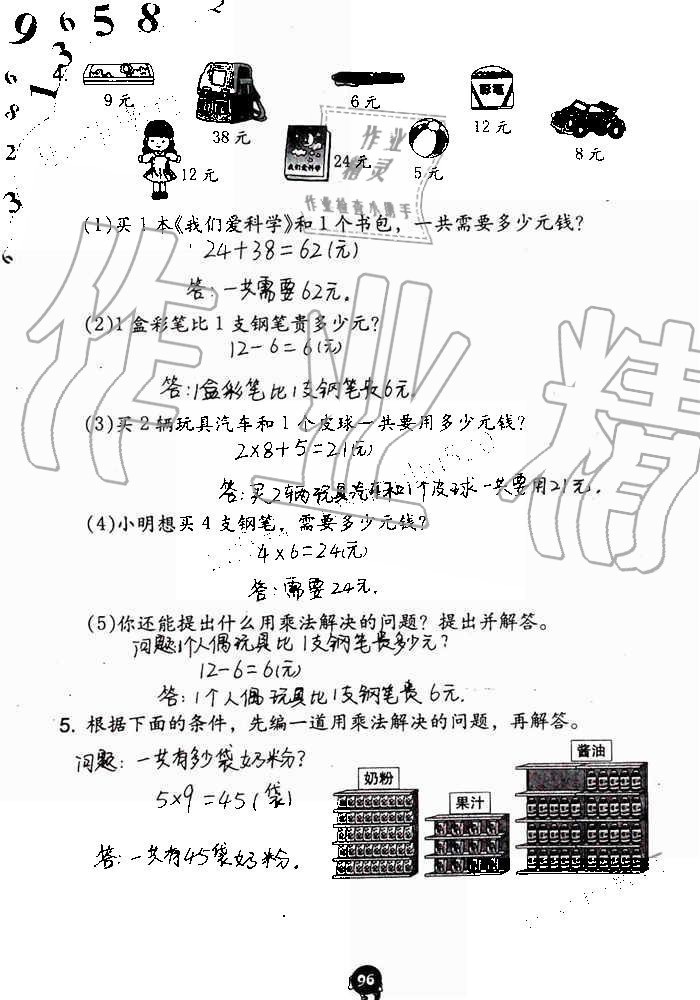 9 6 5 8
3
1
6
8
2
3
6
4.
9元
38元
6元
彩笔
12元
8元
12元
我们爱科学
24元
5元
作业
精灵
作业检查小助手
(1)买1本《我们爱科学》和1个书包，一共需要多少元钱？
24+38=62(元)
答：一共需要62元。
(2)1盒彩笔比1支钢笔贵多少元？
12-6=6(元)
答：1盒彩笔比1支钢笔贵6元.
(3)买2辆玩具汽车和1个皮球一共要用多少元钱？
2×8+5=21(元)
答：买2辆玩具汽车和1个皮球一共要用21元.
(4)小明想买4支钢笔，需要多少元钱？
4×6=24(元)
答：需要24元.
(5)你还能提出什么用乘法解决的问题？提出并解答。
问题:1个人偶玩具比1支钢笔贵多少元？
12-6=6(元)
答：1个人偶玩具比1支钢笔贵6元.
5. 根据下面的条件，先编一道用乘法解决的问题，再解答。
问题：一共有多少袋奶粉？
5×9=45(袋)
答：一共有45袋奶粉.
奶粉
果汁
酱油
作业精
96